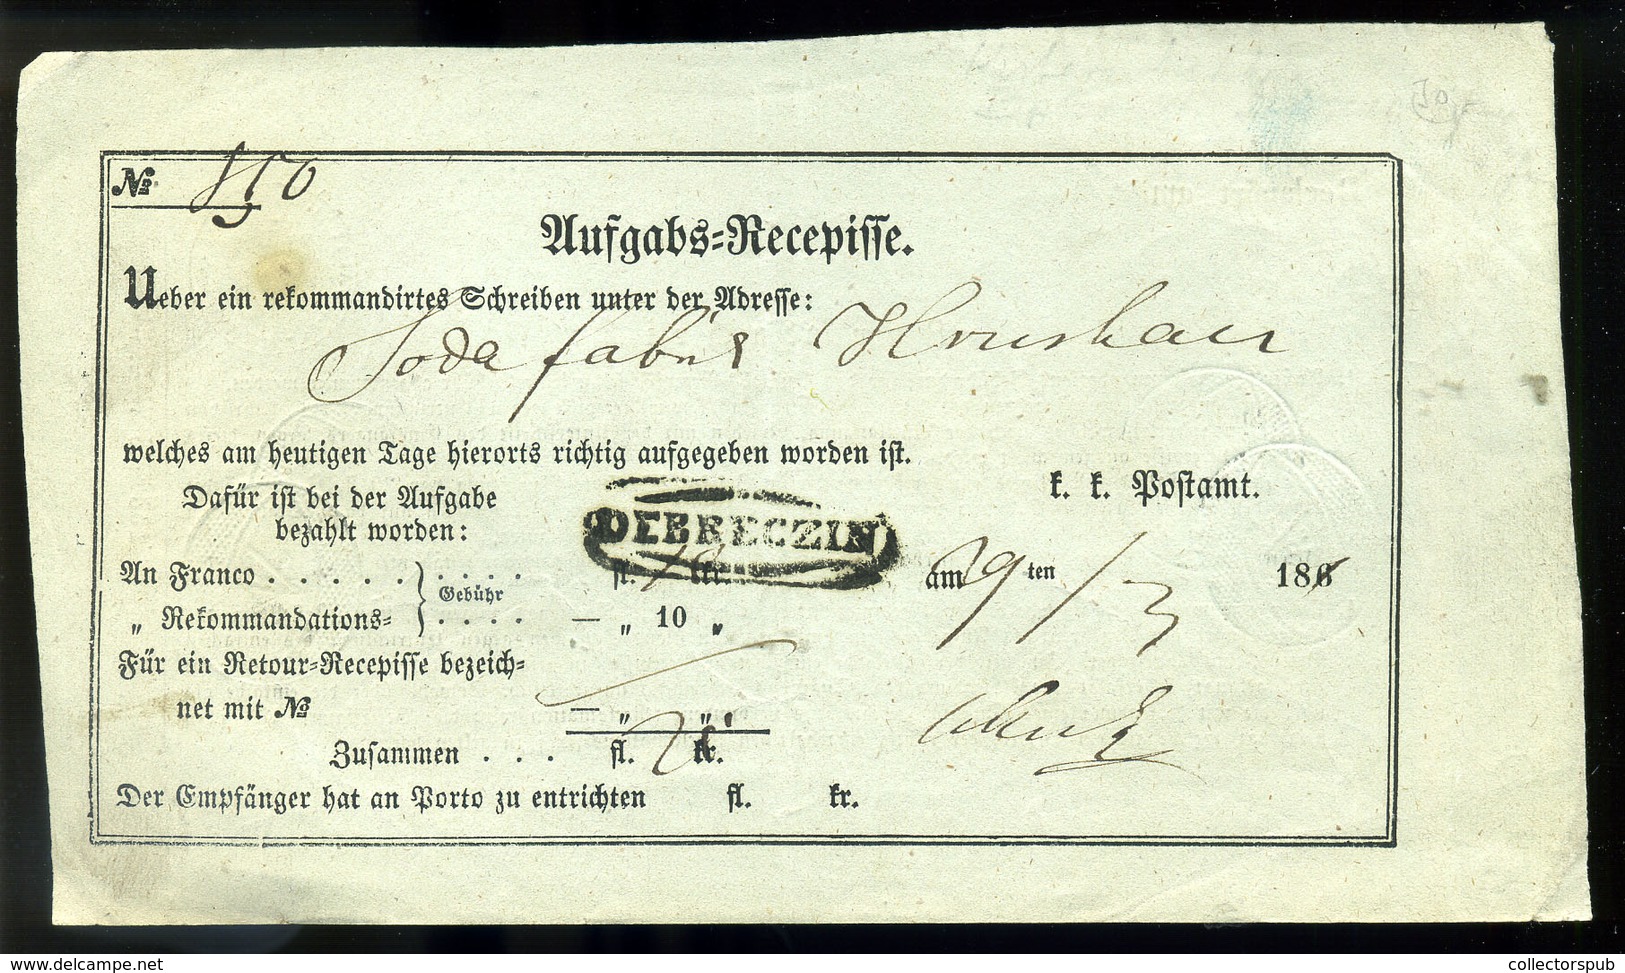 №
Aufgabs=Recepisse.
Ueber ein rekommandirtes Schreiben unter der Adresse:
Sodafabrik Hruschau
welches am heutigen Tage hierorts richtig aufgegeben worden ist.
Dafür ist bei der Aufgabe
bezahlt worden:
k. k. Postamt.
DEBRECZIN
An Franco . . . . . . . . . . fl. kr.
Gebühr
am 29 ten /3 186
„ Rekommandations= . . . . — „ 10 „
Für ein Retour=Recepisse bezeich=
net mit № — „ „
Zusammen . . . fl. kr.
Der Empfänger hat an Porto zu entrichten fl. kr.
collectorspub